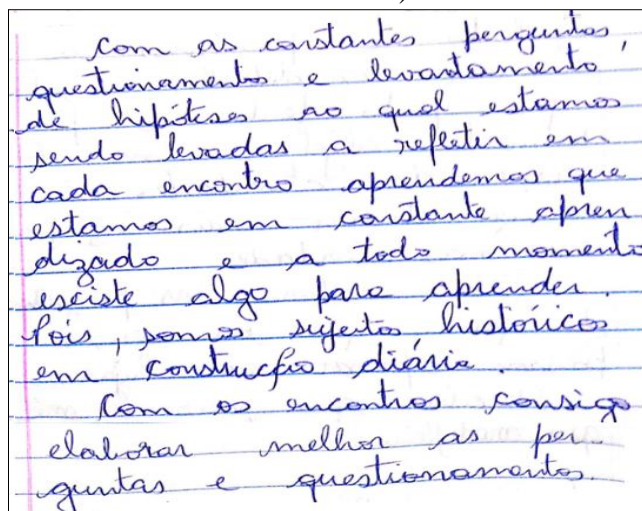 Com as constantes perguntas,
questionamentos e levantamento
de hipóteses ao qual estamos
sendo levadas a refletir em
cada encontro aprendemos que
estamos em constante apren
dizado e a todo momento
esciste algo para aprender.
Pois, somos sujeitos históricos
em construção diária.
Com os encontros consigo
elaborar melhor as per-
guntas e questionamentos.